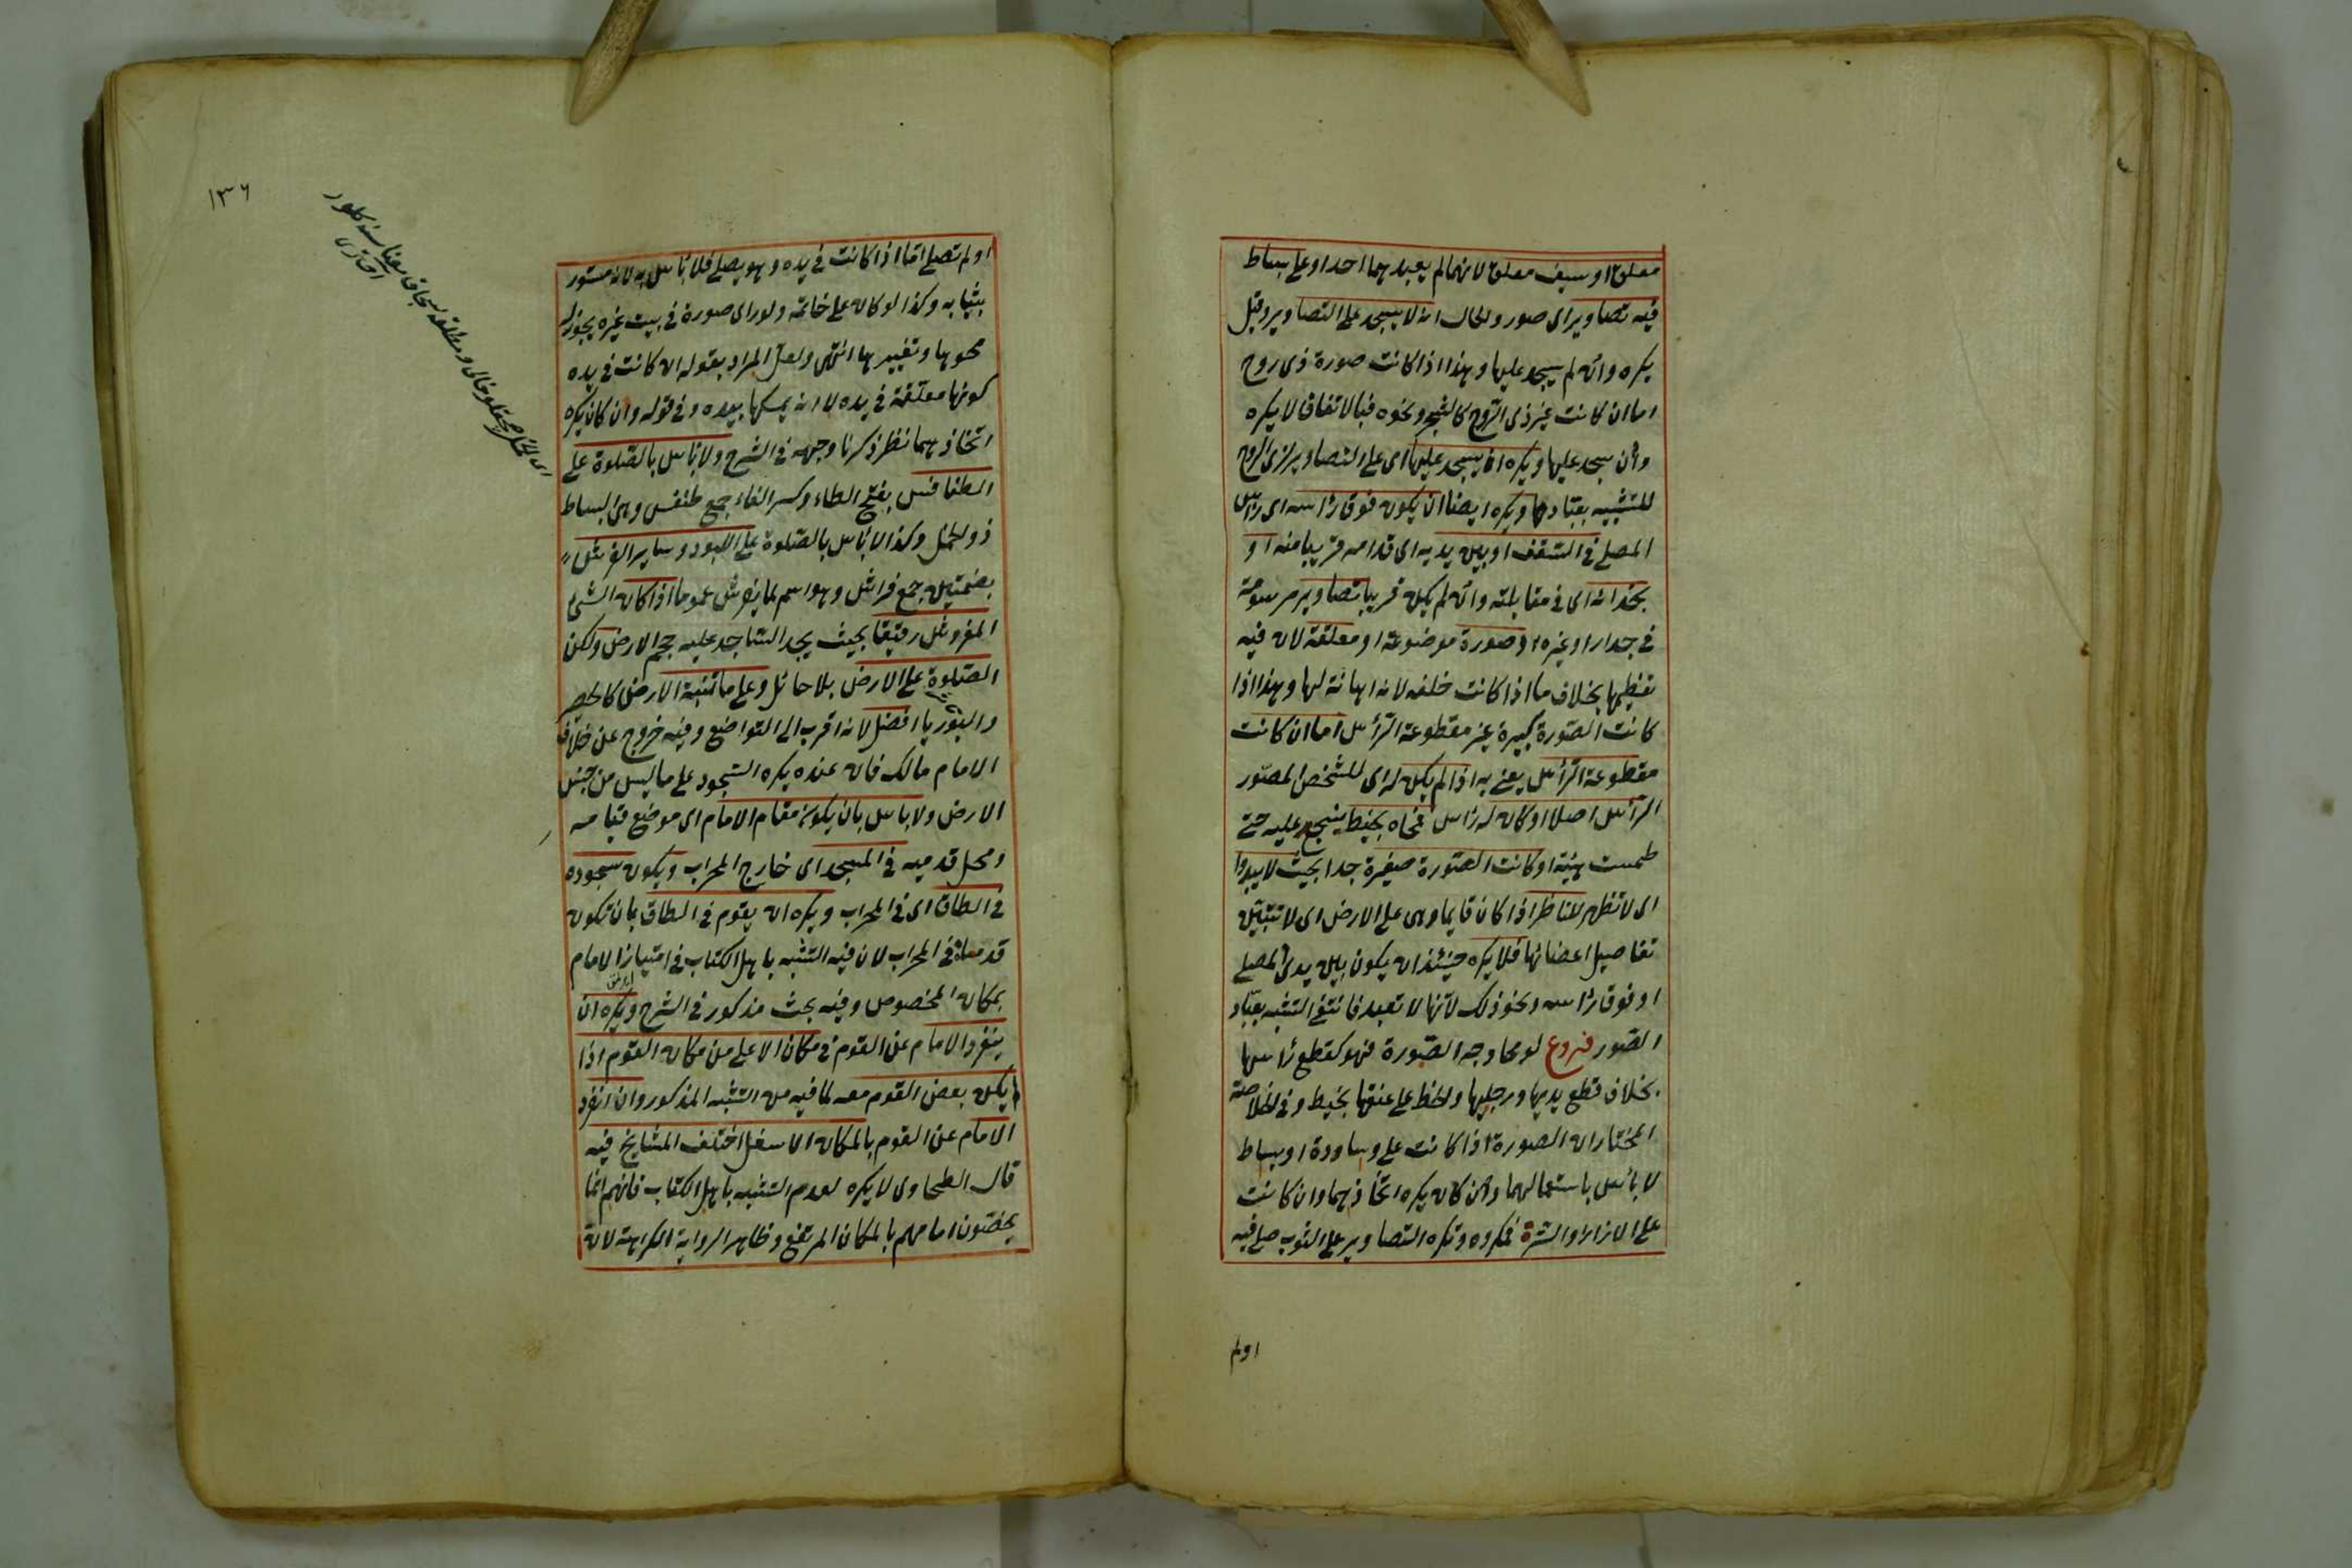 معلق او سيف معلق لانهما لم يعبدهما احد او على بساط
فيه تصاوير اى صور والحال انه لا يسجد على التصاوير وقيل
يكره وان لم يسجد عليها وهذا اذا كانت صورة ذى روح
اما ان كانت غير ذى الروح كالشجر ونحوه فبالاتفاق لا يكره
وان سجد عليها ويكره ان يسجد عليها اى على التصاوير لذى الروح
للتشبيه بعبادها ويكره ايضا ان يكون فوق رأسه اى رأس
المصلى فى السقف او بين يديه اى قدامه قريبا منه او
بحذائه اى فى مقابلته وان لم يكن قريبا تصاوير مرسومة
فى جدار او غيره او صورة موضوعة او معلقة لان فيه
تعظيمها بخلاف ما اذا كانت خلفه لانه اهانة لها وهذا اذا
كانت الصورة كبيرة غير مقطوعة الرأس اما ان كانت
مقطوعة الرأس يعنى به اذا لم يكن له اى للشخص المصور
الرأس اصلا او كان له رأس فمحاه بخيط ينسج عليه حتى
طمست هيئته او كانت الصورة صغيرة جدا بحيث لا يبدو
اى لا تظهر للناظر اذا كان قايما وهى على الارض اى لا تتبين
تفاصيل اعضائها فلا يكره حينئذ ان يكون بين يدى المصلى
او فوق رأسه ونحو ذلك لانها لا تعبد فانتفى التشبه بعباد
الصور فروع لو محا وجه الصورة فهو كقطع رأسها
بخلاف قطع يديها ورجليها والخط على عنقها بخيط وفى الخلاصة
المختار ان الصورة اذا كانت على وسادة او بساط
لا بأس باستعمالهما وان كان يكره اتخاذهما وان كانت
على الازار او السترة فمكروه وتكره التصاوير على الثوب صلى فيه
اولم
١٣٦
او لم تصلى اما اذا كانت فى يده وهو يصلى فلا بأس به لانه مستور
بثيابه وكذا لو كان على خاتمه ولو راى صورة فى بيت غيره يجوز له
محوها وتغييرها انتهى ولعل المراد بقوله ان كانت فى يده
كونها معلقة فى يده لا انه يمسكها بيده وفى قوله وان كان يكره
اتخاذهما نظر ذكرنا وجهه فى الشرح ولا بأس بالصلوة على
الطنافس بفتح الطاء وكسر الفاء جمع طنفس وهى البساط
ذو الخمل وكذا لا بأس بالصلوة على اللبود وساير الفرش
بضمتين جمع فراش وهو اسم لما يفرش عموما اذا كان الشئ
المفروش رقيقا بحيث يجد الساجد عليه حجم الارض ولكن
الصلوة على الارض بلا حائل وعلى ما تنبته الارض كالحصير
والبوريا افضل لانه اقرب الى التواضع وفيه خروج عن خلاف
الامام مالك فان عنده يكره السجود على ما ليس من جنس
الارض ولا بأس بان يكون مقام الامام اى موضع قيامه
ومحل قدميه فى المسجد اى خارج المحراب ويكون سجوده
فى الطاق اى فى المحراب ويكره ان يقوم فى الطاق بان تكون
قدماه فى المحراب لان فيه التشبه باهل الكتاب فى امتياز الامام
بمكان المخصوص وفيه بحث مذكور فى الشرح ويكره ان
ينفرد الامام عن القوم فى مكان الاعلى من مكان القوم اذا
لم يكن بعض القوم معه لما فيه من التشبه المذكور وان انفرد
الامام عن القوم بالمكان الاسفل اختلف المشايخ فيه
قال الطحاوى لا يكره لعدم التشبه باهل الكتاب فانهم انما
يخصون امامهم بالمكان المرتفع وظاهر الرواية الكراهة لانه